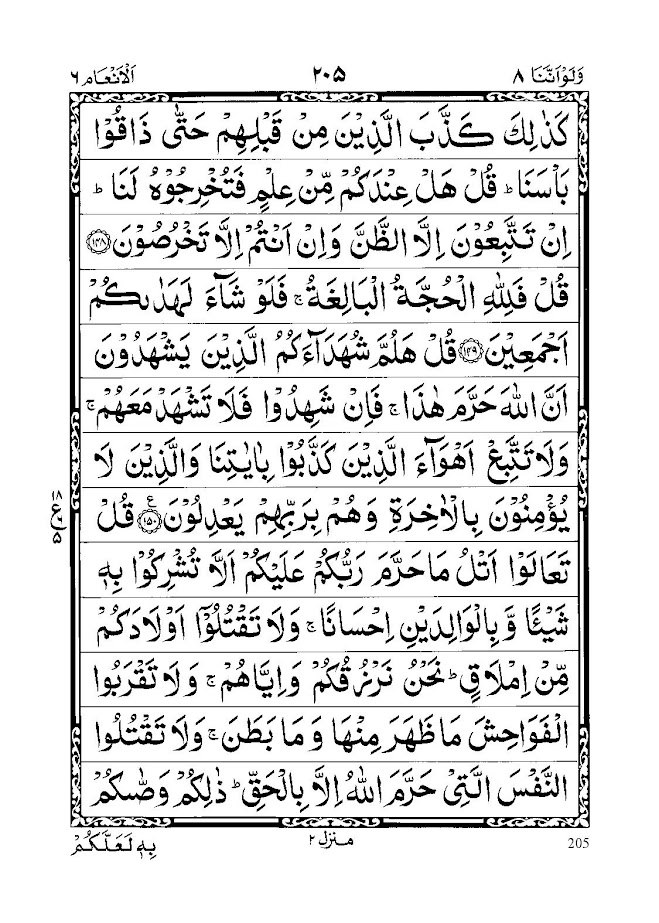 وَلَوْاَنَّنَا ۸ ۲۰۵ اَلْاَنْعَام ۶
كَذٰلِكَ كَذَّبَ الَّذِيْنَ مِنْ قَبْلِهِمْ حَتّٰى ذَاقُوْا
بَاْسَنَا ؕ قُلْ هَلْ عِنْدَكُمْ مِّنْ عِلْمٍ فَتُخْرِجُوْهُ لَنَا ؕ
اِنْ تَتَّبِعُوْنَ اِلَّا الظَّنَّ وَاِنْ اَنْتُمْ اِلَّا تَخْرُصُوْنَ ﴿۱۴۸﴾
قُلْ فَلِلّٰهِ الْحُجَّةُ الْبَالِغَةُ ۚ فَلَوْ شَآءَ لَهَدٰىكُمْ
اَجْمَعِيْنَ ﴿۱۴۹﴾ قُلْ هَلُمَّ شُهَدَآءَكُمُ الَّذِيْنَ يَشْهَدُوْنَ
اَنَّ اللّٰهَ حَرَّمَ هٰذَا ۚ فَاِنْ شَهِدُوْا فَلَا تَشْهَدْ مَعَهُمْ ۚ
وَلَا تَتَّبِعْ اَهْوَآءَ الَّذِيْنَ كَذَّبُوْا بِاٰيٰتِنَا وَالَّذِيْنَ لَا
يُؤْمِنُوْنَ بِالْاٰخِرَةِ وَهُمْ بِرَبِّهِمْ يَعْدِلُوْنَ ﴿۱۵۰﴾ ع قُلْ
۱۸
ع ۶
۵
تَعَالَوْا اَتْلُ مَا حَرَّمَ رَبُّكُمْ عَلَيْكُمْ اَلَّا تُشْرِكُوْا بِهٖ
شَيْئًا وَّ بِالْوَالِدَيْنِ اِحْسَانًا ۚ وَلَا تَقْتُلُوْۤا اَوْلَادَكُمْ
مِّنْ اِمْلَاقٍ ؕ نَحْنُ نَرْزُقُكُمْ وَاِيَّاهُمْ ۚ وَلَا تَقْرَبُوا
الْفَوَاحِشَ مَا ظَهَرَ مِنْهَا وَمَا بَطَنَ ۚ وَلَا تَقْتُلُوا
النَّفْسَ الَّتِيْ حَرَّمَ اللّٰهُ اِلَّا بِالْحَقِّ ؕ ذٰلِكُمْ وَصّٰىكُمْ
205 مـنزل ۲ بِهٖ لَعَلَّكُمْ